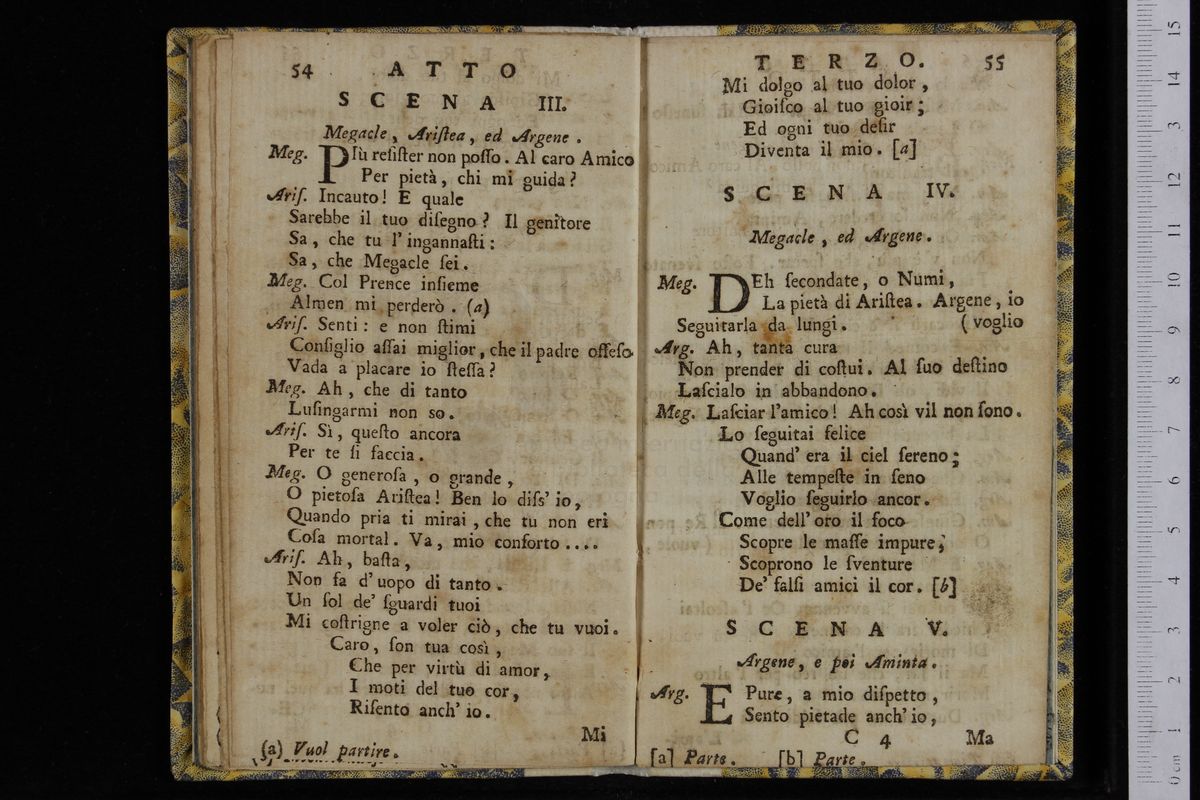 54 ATTO
SCENA III.
Megacle, Ariſtea, ed Argene.
Meg. PIù reſiſter non poſſo. Al caro Amico
Per pietà, chi mi guida?
Ariſ. Incauto! E quale
Sarebbe il tuo diſegno? Il genitore
Sa, che tu l'ingannaſti:
Sa, che Megacle ſei.
Meg. Col Prence inſieme
Almen mi perderò. (a)
Ariſ. Senti: e non ſtimi
Conſiglio aſſai miglior, che il padre offeſo
Vada a placare io ſteſſa?
Meg. Ah, che di tanto
Luſingarmi non so.
Ariſ. Sì, queſto ancora
Per te ſi faccia.
Meg. O generoſa, o grande,
O pietoſa Ariſtea! Ben lo diſs' io,
Quando pria ti mirai, che tu non eri
Coſa mortal. Va, mio conforto....
Ariſ. Ah, baſta,
Non fa d'uopo di tanto.
Un ſol de' ſguardi tuoi
Mi coſtrigne a voler ciò, che tu vuoi.
Caro, ſon tua così,
Che per virtù di amor,
I moti del tuo cor,
Riſento anch' io.
Mi
(a) Vuol partire.
TERZO. 55
Mi dolgo al tuo dolor,
Gioiſco al tuo gioir;
Ed ogni tuo deſir
Diventa il mio. [a]
SCENA IV.
Megacle, ed Argene.
Meg. DEh ſecondate, o Numi,
La pietà di Ariſtea. Argene, io
Seguitarla da lungi. (voglio
Arg. Ah, tanta cura
Non prender di coſtui. Al ſuo deſtino
Laſcialo in abbandono.
Meg. Laſciar l'amico! Ah così vil non ſono.
Lo ſeguitai felice
Quand' era il ciel ſereno;
Alle tempeſte in ſeno
Voglio ſeguirlo ancor.
Come dell' oro il foco
Scopre le maſſe impure;
Scoprono le ſventure
De' falſi amici il cor. [b]
SCENA V.
Argene, e poi Aminta.
Arg. E Pure, a mio diſpetto,
Sento pietade anch' io,
C 4 Ma
[a] Parte. [b] Parte.